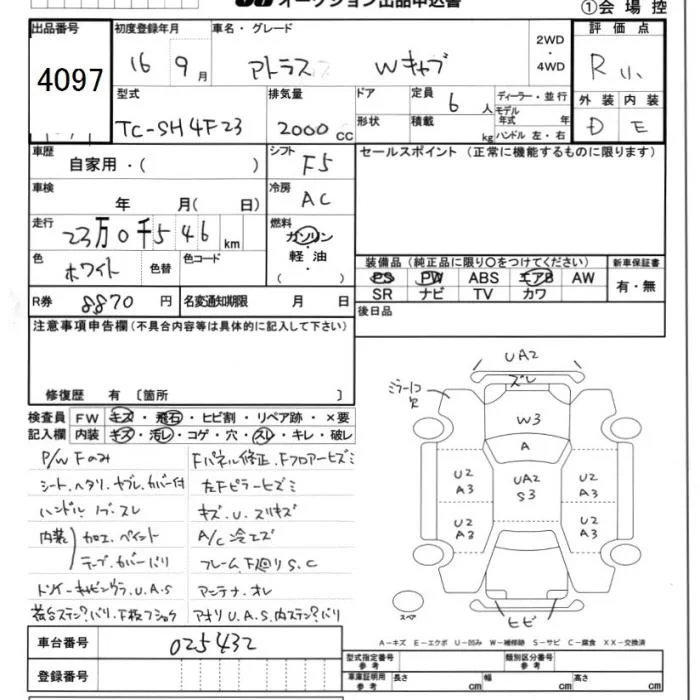 オークション出品申込書
①会場控
出品番号
4097
初度登録年月
16 9月
車名・グレード
アトラス Wキャブ
2WD
・
4WD
評価点
R
型式
TC-SH4F23
排気量
2000CC
ドア
形状
定員
6人
積載
kg
ディーラー・並行
モデル年式 年
ハンドル 左・右
外装 内装
D E
車歴
自家用・( )
シフト
F5
セールスポイント(正常に機能するものに限ります)
車検
年 月( 日)
冷房
AC
走行
23万0千546km
燃料
ガソリン
軽油
( )
色
ホワイト
色替
色コード
装備品(純正品に限り○をつけてください)
新車保証書
PS PW ABS エアB AW
SR ナビ TV カワ
有・無
R券
8870円
名変通知期限 月 日
後日品
注意事項申告欄(不具合内容等は具体的に記入して下さい)
修復歴 有 〔箇所 〕
検査員 FW キズ・飛石・ヒビ割・リペア跡・×要
記入欄 内装 キズ・汚レ・コゲ・穴・スレ・キレ・破レ
P/W Fのみ
Fパネル修正、Fフロアーヒズミ
シート、ヘタリ、ヤブレ、カバー付
左Fピラーヒズミ
ハンドル、ノブ、スレ
キズ、U、スリキズ
内装 加工、ペイント
A/C冷エズ
テープ、カバーバリ
フレーム、F廻りS、C
アンテナ、オレ
荷台ステンバリ、F板フショク
アオリU、A、S、内ステン?バリ
UA2
ズレ
ミラーココ欠
W3
A
UA2
S3
U2
A3
U2
A3
U2
A3
U2
A3
ヒビ
スペア
A-キズ E-エクボ U-凹み W-補修跡 S-サビ C-腐食 XX-交換済
車台番号
025432
登録番号
型式指定番号
参考
類別区分番号
参考
車庫証明用
参考
長さ cm
幅 cm
高さ cm